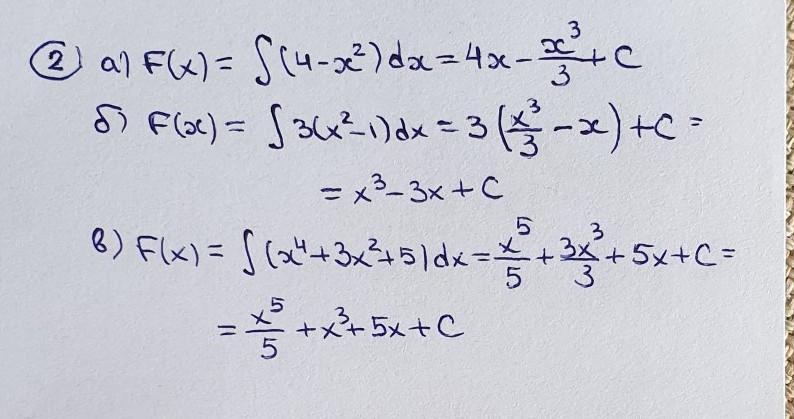 2) а) F(x) = ∫(4-x²)dx = 4x - x³/3 + C
б) F(x) = ∫3(x²-1)dx = 3(x³/3 - x) + C =
= x³ - 3x + C
в) F(x) = ∫(x⁴+3x²+5)dx = x⁵/5 + 3x³/3 + 5x + C =
= x⁵/5 + x³ + 5x + C